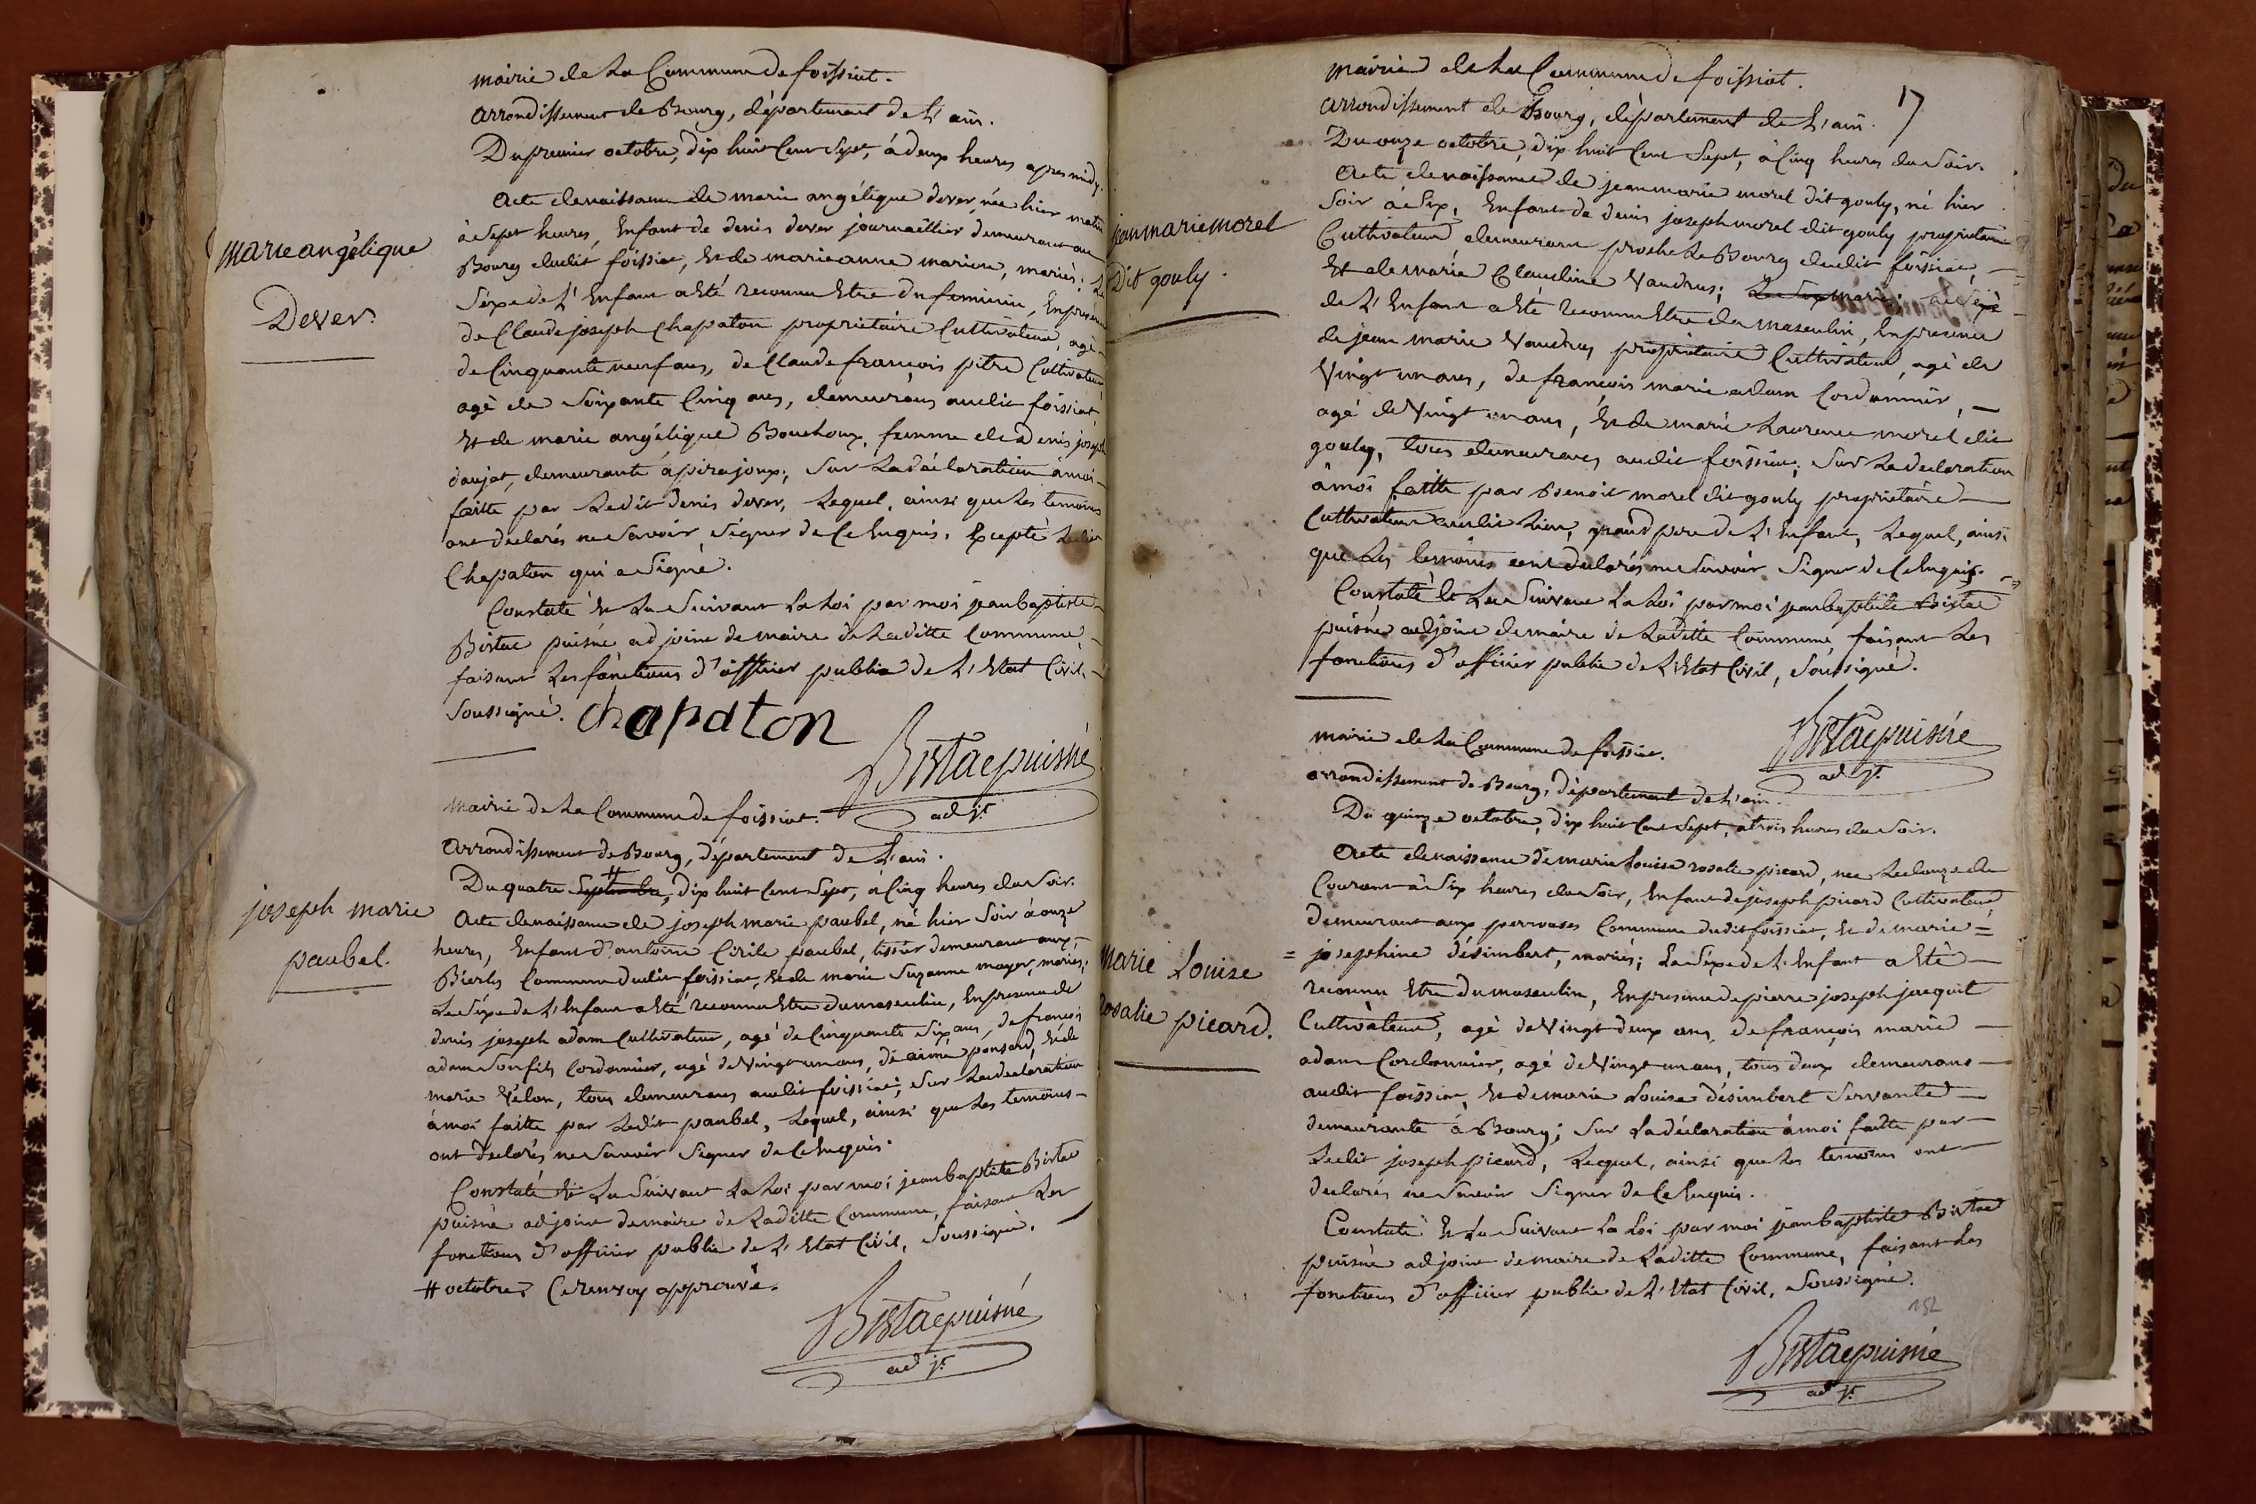 mairie de La Commune de foissiat.
arrondissement de Bourg, département de L'ain.
Du premier octobre, dix huit Cent Sept, à deux heures apres midy.
Acte de naissance de marie angélique dever, née hier matin
à Sept heures, Enfant de denis dever journaillier demeurant au
Bourg dudit foissiat, Et de marieanne mariens, mariés; Le
Séxe de L'Enfant a Eté reconnu Etre du feminin, En présence
de Claude joseph Chapaton proprietaire Cultivateur, agé
de Cinquante neuf ans, de Claude françois pitre Cultivateur
agé de Soixante Cinq ans, demeurans audit foissiat
Et de marie angélique Bouchoux, femme de denis joseph
daujat, demeurante à pirajoux; Sur La déclaration à moi
faitte par Ledit denis dever, Lequel, ainsi que Les temoins
ont declarés ne Savoir Signer de Ce Enquis, Excepté Ledit
Chapaton qui a Signé.
Constaté Et Lu Suivant La Loi par moi jean baptiste
Bistac puisné adjoint de maire de Laditte Commune
faisant Les fonctions d'officier public de L'Etat Civil,
Soussigné. chapaton
Bistac puisné
adjt
marie angélique
Dever.
mairie de La Commune de foissiat.
arrondissement de Bourg, département de L'ain.
Du quatre Septembre # dix huit Cent Sept, à Cinq heures du Soir.
Acte de naissance de joseph marie paubel, né hier Soir à onze
heures, Enfant d'antoine Cirile paubel, tissier demeurant aux
Bierles Commune dudit foissiat, Et de marie Suzanne mayer, mariés;
Le Séxe de L'Enfant a Eté reconnu Etre du masculin, En presence de
denis joseph adam Cultivateur, agé de Cinquante Six ans, de françois
adam Son fils Cordonnier, agé de Vingt un ans, de aimé ponsard, Et de
marie Vélon, tous demeurans audit foissiat; Sur La declaration
à moi faitte par Ledit paubel, Lequel, ainsi que Les temoins
ont declarés ne Savoir Signer de Ce Enquis.
Constaté Et Lu Suivant La Loi par moi jean baptiste Bistac
puisné adjoint de maire de Laditte Commune, faisant Les
fonctions d'officier public de L'Etat Civil, Soussigné.
# octobre, Ce renvoy approuvé.
Bistac puisné
adjt
joseph marie
paubel.
17
mairie de La Commune de foissiat.
arrondissement de Bourg, département de L'ain.
Du onze octobre, dix huit Cent Sept, à Cinq heures du Soir.
Acte de naissance de jean marie morel dit gouly, né hier
Soir à Six, Enfant de denis joseph morel dit gouly proprietaire
Cultivateur demeurant proche Le Bourg dudit foissiat,
Et de marie Claudine Vaudrus; mariés; Le Séxe
de L'Enfant a Eté reconnu Etre du masculin, En presence
de jean marie Vaudrus proprietaire Cultivateur, agé de
Vingt un ans, de françois marie adam Cordonnier,
agé de Vingt un ans, Et de marie Laurence morel dit
gouly, tous demeurans audit foissiat; Sur La declaration
à moi faitte par Benoit morel dit gouly proprietaire
Cultivateur audit Lieu, grand pere de L'Enfant, Lequel, ainsi
que Les temoins ont declarés ne Savoir Signer de Ce Enquis.
Constaté Et Lu Suivant La Loi par moi jean baptiste Bistac
puisné adjoint de maire de Laditte Commune faisant Les
fonctions d'officier public de L'Etat Civil, Soussigné.
Bistac puisné
adjt
jean marie morel
Dit gouly.
mairie de La Commune de foissiat.
arrondissement de Bourg, département de L'ain.
Du quinze octobre, dix huit Cent Sept, à trois heures du Soir.
Acte de naissance de marie Louise rosalie picard, née Le douze du
Courant à Six heures du Soir, Enfant de joseph picard Cultivateur,
demeurant aux Commune dudit foissiat, Et de marie =
= josephine désimbert, mariés; Le Séxe de L'Enfant a Eté
reconnu Etre du masculin, En presence de pierre joseph jacquet
Cultivateur, agé de Vingt deux ans, de françois marie
adam Cordonnier, agé de Vingt un ans, tous deux demeurans
audit foissiat, Et de marie Louise désimbert Servante
demeurante à Bourg; Sur La déclaration à moi faitte par
Ledit joseph picard, Lequel, ainsi que Les temoins ont
declarés ne Savoir Signer de Ce Enquis.
Constaté Et Lu Suivant La Loi par moi jean baptiste Bistac
puisné adjoint de maire de Laditte Commune, faisant Les
fonctions d'officier public de L'Etat Civil, Soussigné.
152
Bistac puisné
adjt
Marie Louise
rosalie picard.